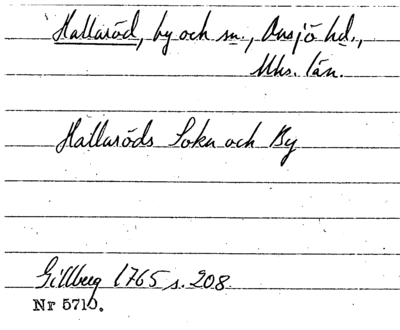 Hallaröd, by och sn., Onsjö hd.,
Mhs. län.
Hallaröds Sokn och By
Gillberg 1765 s. 208.
Nr 5710.